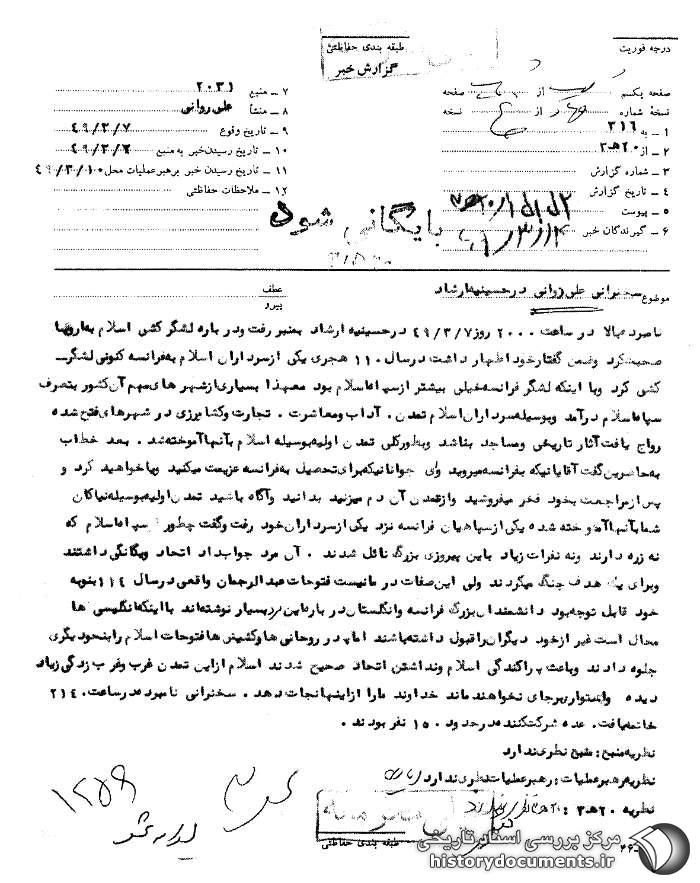 درجه فوریت
طبقه بندی حفاظتی
گزارش خبر
صفحه یکم از صفحه
نسخه شماره از نسخه
۱ – به ۳۱۶
۲ – از ۲۰ هـ ۳
۳ – شماره گزارش
۴ – تاریخ گزارش
۵ – پیوست
۶ – گیرندگان خبر
۷ – منبع ۲۰۳۱
۸ – منشأ علی روانی
۹ – تاریخ وقوع ۴۹/۳/۷
۱۰ – تاریخ رسیدن خبر به منبع ۴۹/۳/۷
۱۱ – تاریخ رسیدن خبر برهبر عملیات محل ۴۹/۳/۱۰
۱۲ – ملاحظات حفاظتی
بایگانی شود
موضوع سخنرانی علی روانی در حسینیه ارشاد
عطف
پیرو
نامبرده بالا در ساعت ۲۰۰۰ روز ۴۹/۳/۷ در حسینیه ارشاد بمنبر رفت و در باره لشگر کشی اسلام به اروپا
صحبت کرد و ضمن گفتار خود اظهار داشت در سال ۱۱۰ هجری یکی از سرداران اسلام به فرانسه کنونی لشگر
کشی کرد و با اینکه لشگر فرانسه خیلی بیشتر از سپاه اسلام بود معهذا بسیاری از شهر های مهم آن کشور بتصرف
سپاه اسلام درآمد و بوسیله سرداران اسلام تمدن . آداب و معاشرت . تجارت و کشاورزی در شهرهای فتح شده
رواج یافت آثار تاریخی و مساجد بناشد و بطور کلی تمدن اولیه بوسیله اسلام بآنها آموخته شد . بعد خطاب
به حاضرین گفت آقایانیکه بفرانسه میروید وای جوانانیکه برای تحصیل به فرانسه عزیمت میکنید ویا خواهید کرد و
پس از مراجعت بخود فخر میفروشید و از تمدن آن دم میزنید بدانید و آگاه باشید تمدن اولیه بوسیله نیاکان
شما بآنها آموخته شده یکی از سپاهیان فرانسه نزد یکی از سرداران خود رفت و گفت چطور سپاه اسلام که
نه زره دارند ونه نفرات زیاد باین پیروزی بزرگ نائل شدند . آن مرد جواب داد اتحاد ویگانگی داشتند
وبرای یک هدف جنگ میکردند ولی این صفات در ما نیست فتوحات عبدالرحمان واقعی در سال ۱۱۴ بنوبه
خود قابل توجه بود دانشمندان بزرگ فرانسه وانگلستان در باره این نبرد بسیار نوشته اند با اینکه انگلیسی ها
محال است غیر از خود دیگران را قبول داشته باشند اما پدر روحانی ها و کشیش ها فتوحات اسلام را بنحو دیگری
جلوه دادند وباعث پراکندگی اسلام ونداشتن اتحاد صحیح شدند اسلام از این تمدن غرب وغرب زدگی زیاد
دیده واستوار برجای نخواهند ماند خداوند مارا از اینها نجات دهد . سخنرانی نامبرده در ساعت ۲۱۴۰
خاتمه یافت . عده شرکت کننده در حدود ۱۵۰ نفر بودند .
نظریه منبع : منبع نظری ندارد
نظریه رهبر عملیات : رهبر عملیات نظری ندارد
نظریه ۲۰ هـ ۳
۱۲۵۹
طبقه بندی حفاظتی
مرکز بررسی اسناد تاریخی
historydocuments.ir